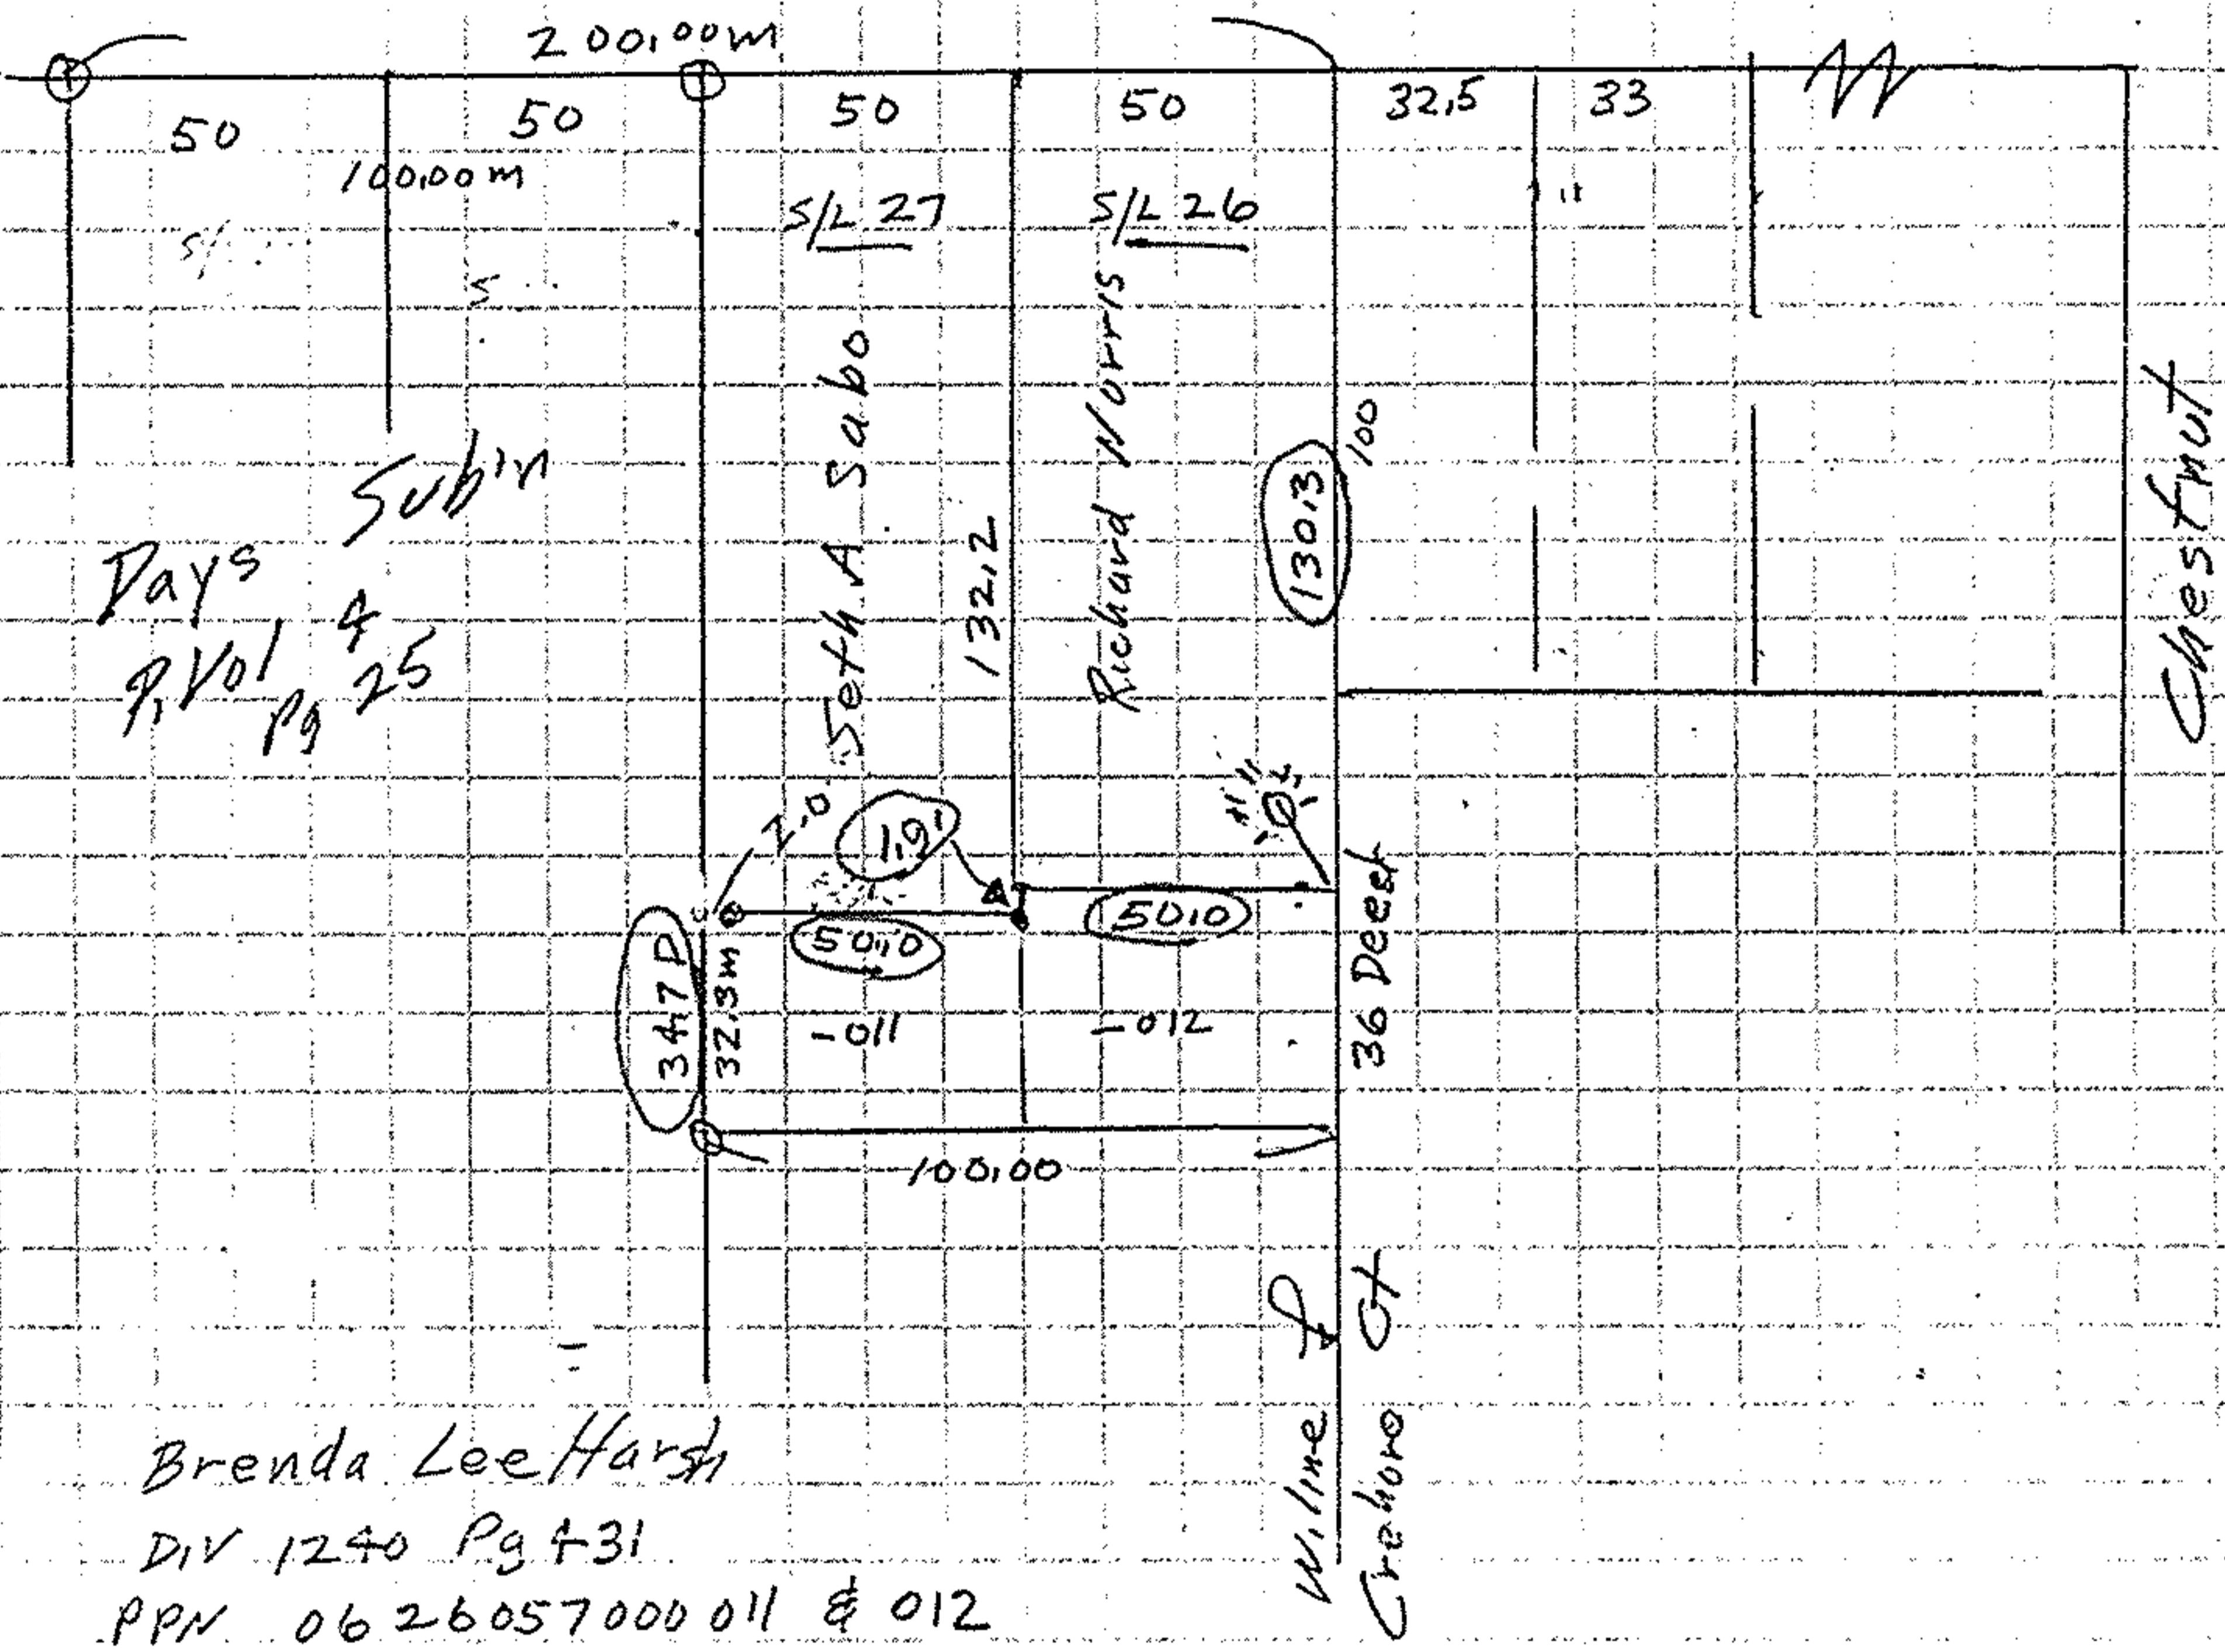 200.00m
50
50
50
50
32.5
33
100.00m
S/L 27
S/L 26
Seth A Sabo
132.2
Richard Norris
130.3
100
Chestnut
Days Sub'n
P. Vol 4
Pg 25
2.0
1.9'
50.0
50.0
34.7 D
32.3m
-011
-012
36 Deed
100.00
W. line of
Crehore
Brenda Lee Harsh
D.V 1240 Pg 431
PPN 06 26057000 011 & 012